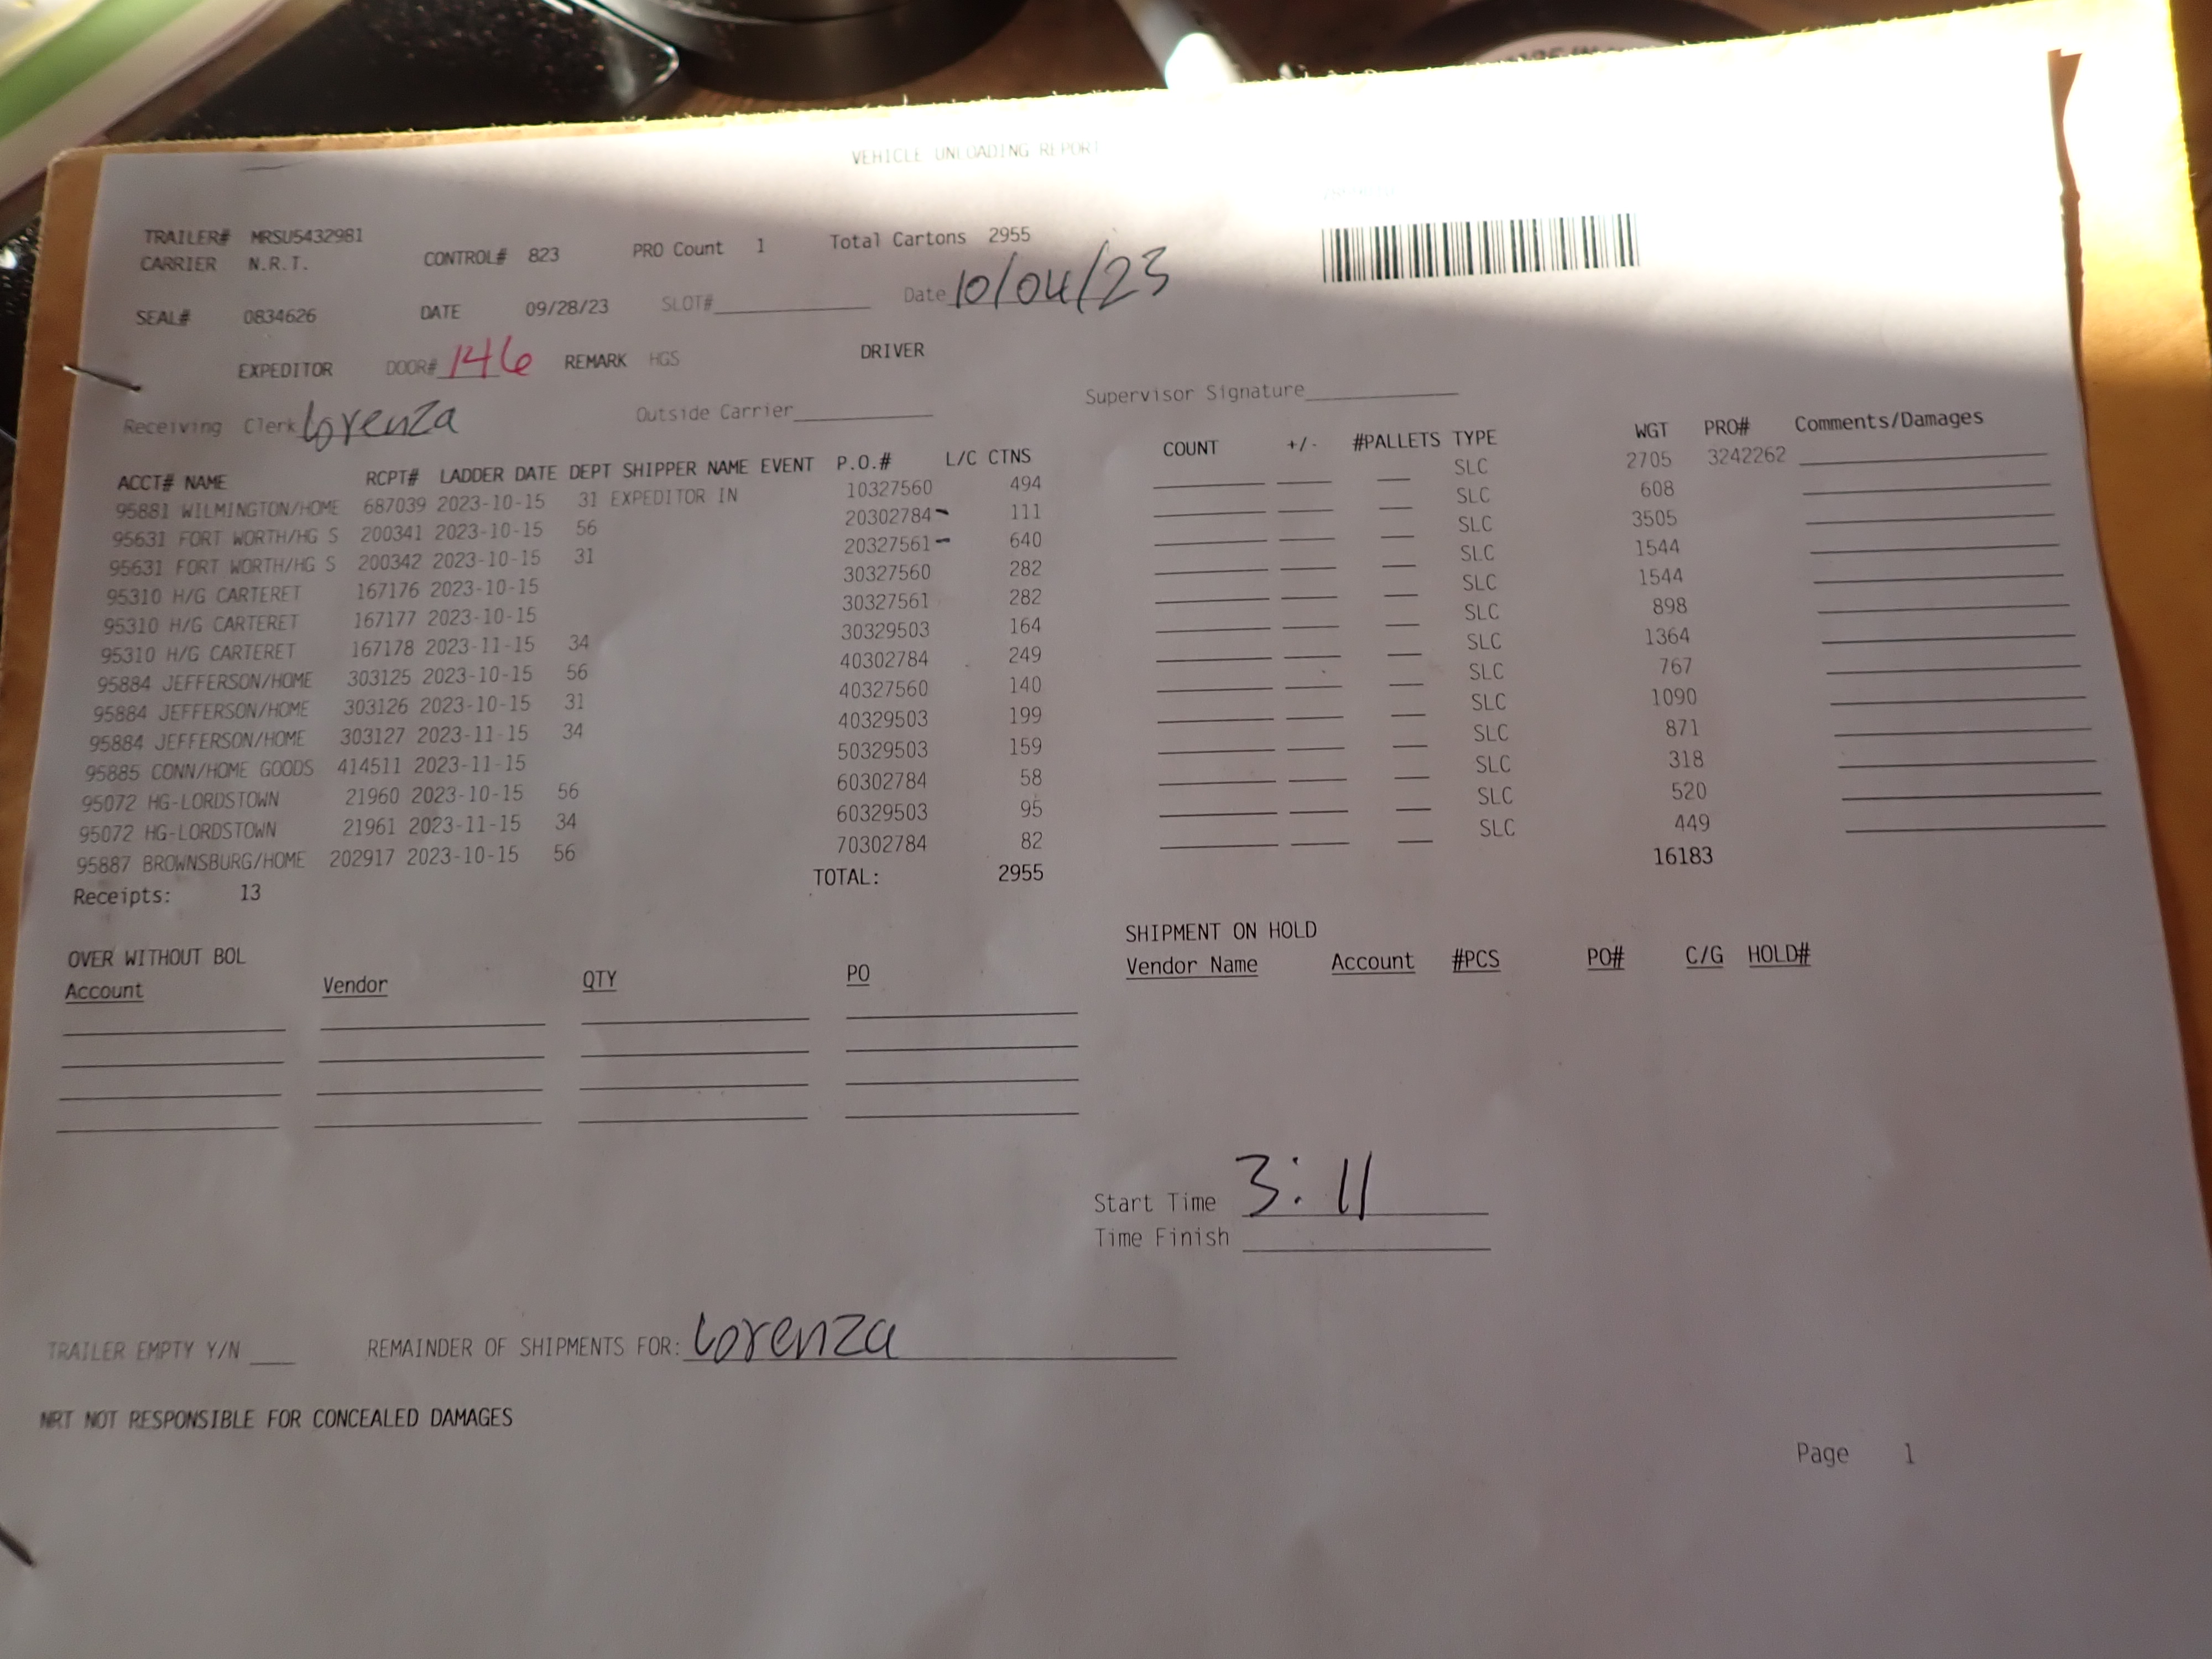 VEHICLE UNLOADING REPORT
TRAILER# MRSU5432981
CARRIER N.R.T. CONTROL# 823 PRO Count 1 Total Cartons 2955
SEAL# 0834626 DATE 09/28/23 SLOT# Date 10/04/23
EXPEDITOR DOOR# 146 REMARK HGS DRIVER
Receiving Clerk Lorenza Outside Carrier Supervisor Signature
ACCT# NAME RCPT# LADDER DATE DEPT SHIPPER NAME EVENT P.O.# L/C CTNS COUNT +/- #PALLETS TYPE WGT PRO# Comments/Damages
95881 WILMINGTON/HOME 687039 2023-10-15 31 EXPEDITOR IN 10327560 494 SLC 2705 3242262
95631 FORT WORTH/HG S 200341 2023-10-15 56 20302784 111 SLC 608
95631 FORT WORTH/HG S 200342 2023-10-15 31 20327561 640 SLC 3505
95310 H/G CARTERET 167176 2023-10-15 30327560 282 SLC 1544
95310 H/G CARTERET 167177 2023-10-15 30327561 282 SLC 1544
95310 H/G CARTERET 167178 2023-11-15 34 30329503 164 SLC 898
95884 JEFFERSON/HOME 303125 2023-10-15 56 40302784 249 SLC 1364
95884 JEFFERSON/HOME 303126 2023-10-15 31 40327560 140 SLC 767
95884 JEFFERSON/HOME 303127 2023-11-15 34 40329503 199 SLC 1090
95885 CONN/HOME GOODS 414511 2023-11-15 50329503 159 SLC 871
95072 HG-LORDSTOWN 21960 2023-10-15 56 60302784 58 SLC 318
95072 HG-LORDSTOWN 21961 2023-11-15 34 60329503 95 SLC 520
95887 BROWNSBURG/HOME 202917 2023-10-15 56 70302784 82 SLC 449
Receipts: 13 TOTAL: 2955 16183
OVER WITHOUT BOL SHIPMENT ON HOLD
Account Vendor QTY PO Vendor Name Account #PCS PO# C/G HOLD#
Start Time 3:11
Time Finish
TRAILER EMPTY Y/N REMAINDER OF SHIPMENTS FOR: Lorenza
NRT NOT RESPONSIBLE FOR CONCEALED DAMAGES
Page 1